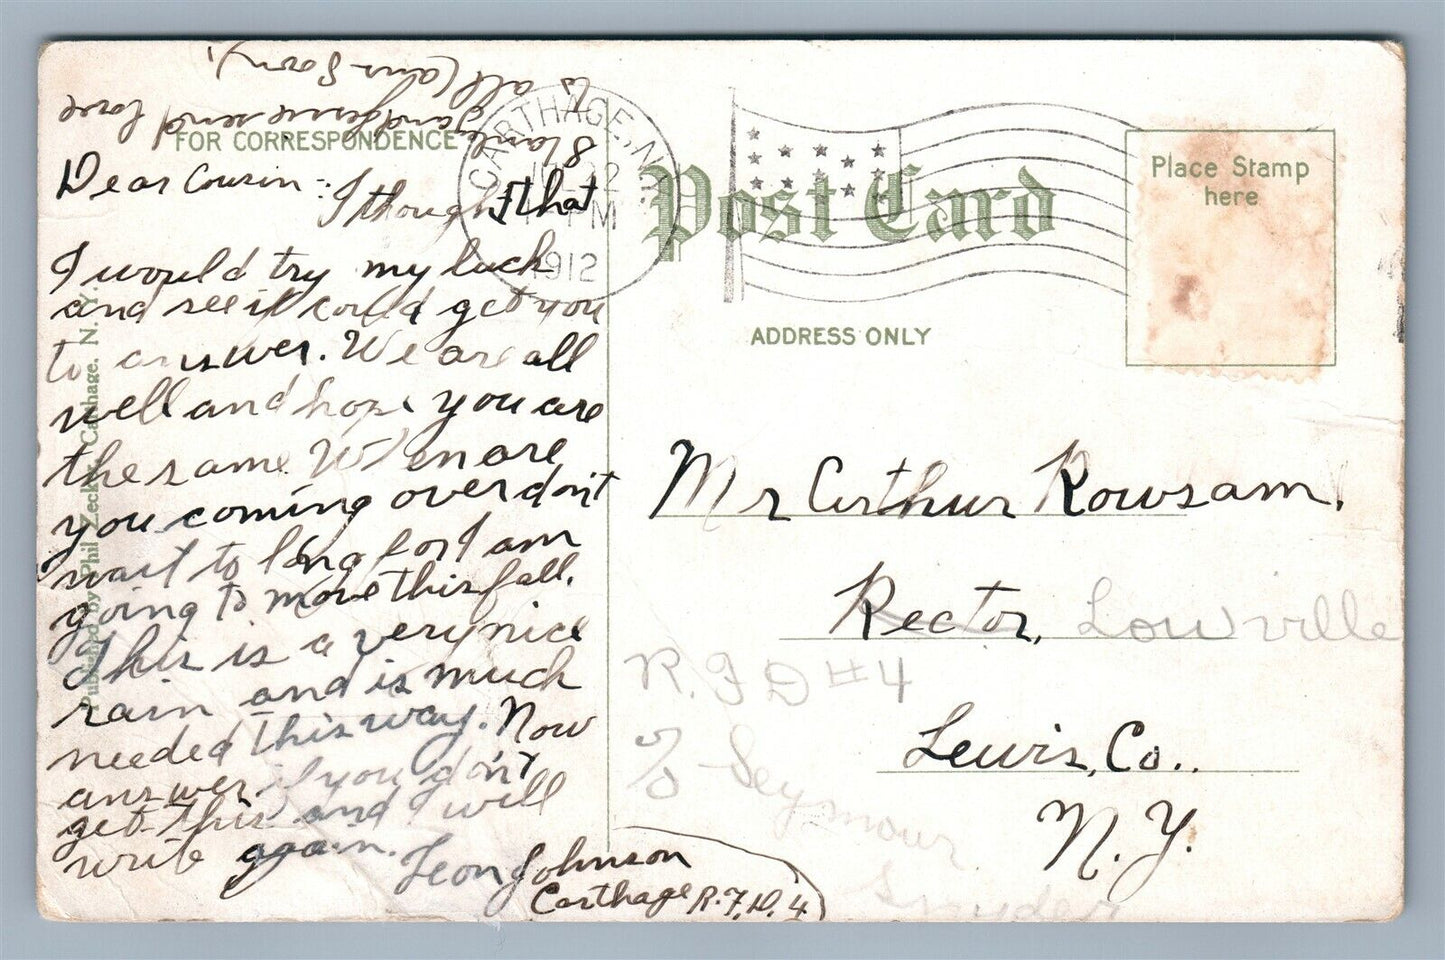 to all (ans Soon).
Stanley and Jennie send love
FOR CORRESPONDENCE
Dear Cousin:-
I thought that
I would try my luck
and see if could get you
to answer. We are all
well and hope you are
the same When are
you coming over don't
wait to long for I am
going to move this fall.
This is a very nice
rain and is much
needed this way. Now
answer if you don't
get this and I will
write again.
Leon Johnson
Carthage R.F.D. 4
Published by Phil Zecky, Carthage, N. Y.
CARTHAGE, N.Y.
PM
1912
Post Card
ADDRESS ONLY
Place Stamp
here
Mr Arthur Rowsam.
Rector, Lowville
R. F D #4
Lewis, Co..
% Seymour
Snyder
N. Y.